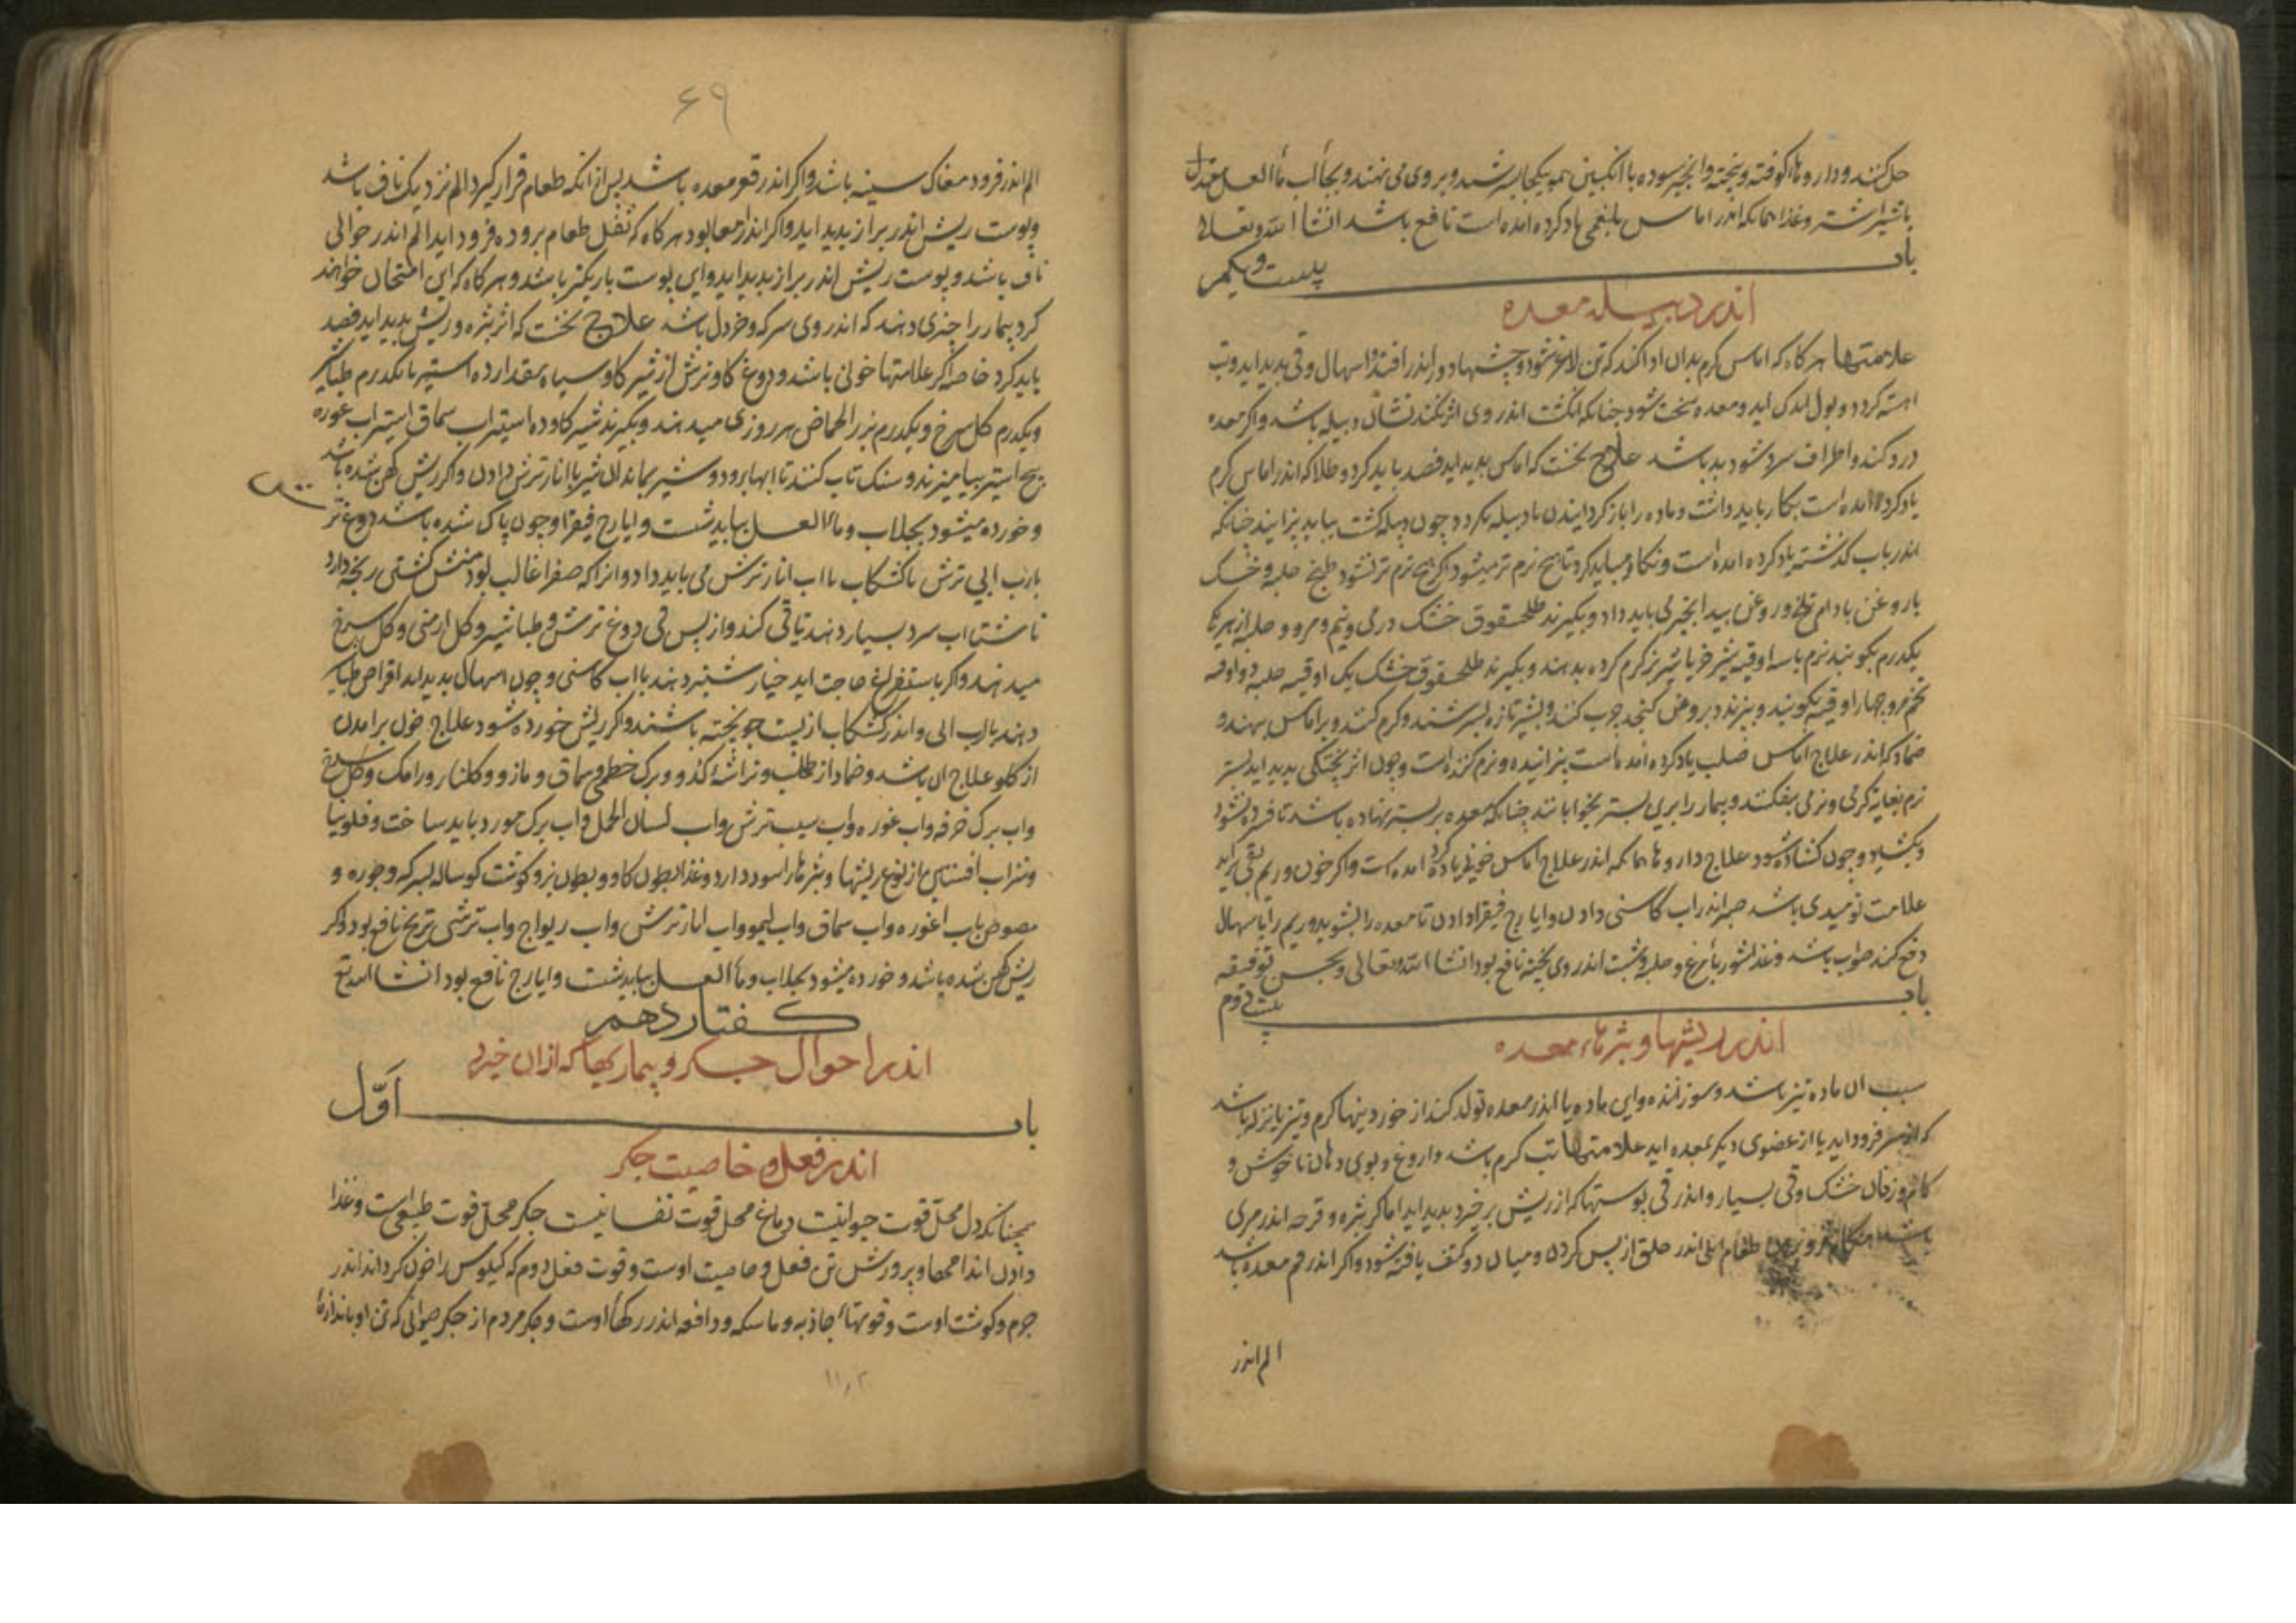 حل کنند و داروها کوفته و بیخته و انجیر سوده با انگبین همه بیکجا بسرشند و بر وی می نهند و بجای آب ماالعسل معتدل
باشتر و غذا همانکه اندر اماس بلغمی یاد کرده امده است نافع باشد انشاالله تعالی
باب بیست و یکم
اندر دبیله معده
علامتها هرکاه که اماس کرم بدان ادا کند که تن لاغر شود و چشمها دور اندر افتد و اسهال و قی پدید اید و تب
اهسته کردد و بول اندکی اید و معده سخت شود چنانکه انکشت اندر وی اثر نکند نشان دبیله باشد و اکر معده
درد کند و اطراف سرد شود بد باشد علاج نخست که اماس پدید اید فصد باید کرد و طلا که اندر اماس کرم
یاد کرده امده است بکار باید داشت و ماده را باز کردانیدن تا دبیله نکردد چون دبیله کشت بباید پزانید چنانکه
اندر باب کذشته یاد کرده امده است و نکاه میباید کرد تا هیچ نرم تر میشود اکر هیچ نرم تر نشود طبیخ حلبه و خسک
با روغن بادام تلخ و روغن بید انجیر می باید داد و بکیرند طلحشقوق خشک درمی و نیم و مرو و حلبه از هر یکی
یکدرم بکوبند نرم با سه اوقیه شیر خر یا شیر بز کرم کرده بدهند و بکیرند طلحشقوق خشک یک اوقیه حلبه دو اوقیه
تخم مرو چهار اوقیه بکوبند و بپزند و بروغن کنجد چرب کنند و بشیر تازه بسرشند و کرم کنند و بر اماس نهند و
ضماد که اندر علاج اماس صلب یاد کرده امده است پزاننده و نرم کننده است و چون اثر پختکی پدید اید بستر
نرم بغایة کرمی و نرمی بفکنند و بیمار را بر ین بستر بخوابانند چنانکه معده بر بستر نهاده باشد تا فسرده نشود
و بکشاید و چون کشاده شود علاج داروها همانکه اندر علاج اماس یاد کرده امده است و اکر خون و ریم بقی براید
علامت نومیدی باشد صبر اندر اب کاسنی دادن و ایارج فیقرا دادن تا معده را بشوید و ریم را باسهال
دفع کند صواب باشد و غذا شوربا مرغ و حلبه و شبت اندر وی پخته نافع بود انشاالله تعالی و بحسن توفیقه
باب بیست و دوم
اندر ریشها و بثرهاء معده
سبب ان ماده تیز باشد و سوزاننده و این ماده یا اندر معده تولد کند از خوردنیهاء کرم و تیز یا نزله باشد
که از سر فرود اید یا از عضوی دیکر بمعده اید علامتها تب کرم باشد و اروغ و بوی دهان ناخوش و
کام و زفان خشک و قی بسیار و اندر قی پوستها که از ریش برخیزد پدید اید اما اکر بثره و قرحه اندر مری
باشد طعام المی اندر حلق از پس کردن و میان دو کتف یافته شود و اکر اندر فم معده باشد
الم اندر
۶۹
الم اندر فرود مغاک سینه باشد و اکر اندر قعر معده باشد پس از انکه طعام قرار کیرد الم نزدیک ناف باشد
و پوست ریش اندر براز پدید اید و اکر اندر امعا بود هر کاه که ثفل طعام بروده فرود اید الم اندر حوالی
ناف باشد و پوست ریش اندر براز پدید اید و این پوست باریکتر باشد و هر کاه که این امتحان خواهند
کرد بیمار را چیزی دهند که اندر وی سرکه و خردل باشد علاج نخست که اثر بثره و ریش پدید اید فصد
باید کرد خاصه اکر علامتها خونی باشد و دوغ کاو ترش از شیر کاو سیاه مقدار ده استیر با یکدرم طباشیر
و یکدرم کل سرخ و یکدرم بزر الحماض هر روزی میدهند و بکیرند شیر کاو ده استیر اب سماق استیر اب غوره
پنج استیر بیامیزند و سنک تاب کنند تا ابها برود و شیر بماند ان شیر با انار ترش دادن و اکر ریش کهن شده باشد
و خورده میشود بجلاب و ماالعسل بباید شست و ایارج فیقرا و چون پاک شده باشد دوغ تر
با رب ابی ترش با کشکاب با اب انار ترش می باید داد و انرا که صفرا غالب بود منش کشتی رنجه دارد
ناشتا اب سرد بسیار دهند تا قی کند و از پس قی دوغ ترش و طباشیر و کل ارمنی و کل سرخ
میدهند و اکر باستفراغ حاجت اید خیار شنبر دهند با اب کاسنی و چون اسهال پدید اید اقراص طباشیر
دهند با رب ابی و اندر کشکاب از پست جو پخته باشند و اکر ریش خورده شود علاج خون برامدن
از کلو علاج ان باشد و ضماد از طحلب و تراشه کدو و برک خطمی و سماق و مازو و کلنار و رامک و کل سرخ
و اب برک خرفه و اب غوره و اب سیب ترش و اب لسان الحمل و اب برک مورد باید ساخت و فلونیا
و شراب افسنتین از نوع ریشها و بثرها را سود دارد و غذا بطون کاو و بطون بز و کوشت کوساله بسرکه و جوره و
مصوص باب غوره و اب سماق و اب لیمو و اب انار ترش و اب ریواج و اب ترشی ترنج نافع بود و اکر
ریش کهن شده باشد و خورده میشود بجلاب و ماالعسل بباید شست و ایارج نافع بود انشاالله تع
کفتار دهم
اندر احوال جکر و بیماریها که ازان خیزد
باب اوّل
اندر فعل و خاصیت جکر
همچنانکه دل محلّ قوت حیوانیت دماغ محل قوت نفسانیست جکر محلّ قوت طبیعیست و غذا
دادن اندامها و پرورش تن فعل و خاصیت اوست و قوت فعل دوم که کیلوس را خون کرداند اندر
جرم و کوشت اوست و قوتهاء جاذبه و ماسکه و دافعه اندر رکهاء اوست و جکر مردم از جکر حیوانی که تن او باندازۀ